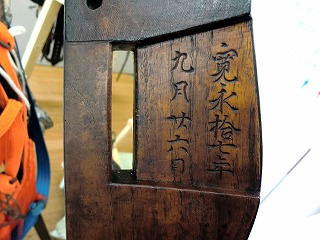 寛永拾七年
九月廿六日